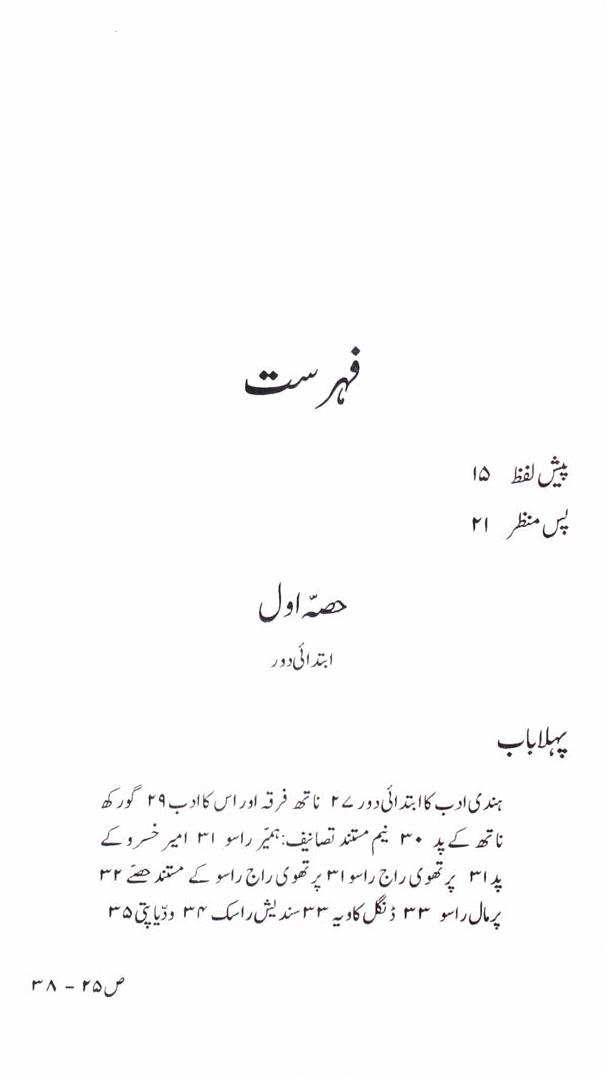 فہرست
پیش لفظ ۱۵
پس منظر ۲۱
حصہّ اول
ابتدائی دور
پہلا باب
ہندی ادب کا ابتدائی دور ۲۷ ناتھ فرقہ اور اس کا ادب ۲۹ گورکھ
ناتھ کے پد ۳۰ نیم مستند تصانیف: ہمیّر راسو ۳۱ امیر خسرو کے
پد ۳۱ پرتھوی راج راسو ۳۱ پرتھوی راج راسو کے مستند حصّے ۳۲
پرمال راسو ۳۳ ڈنگل کاویہ ۳۳ سندیش راسک ۳۴ ودّیاپتی ۳۵
ص ۲۵ - ۳۸